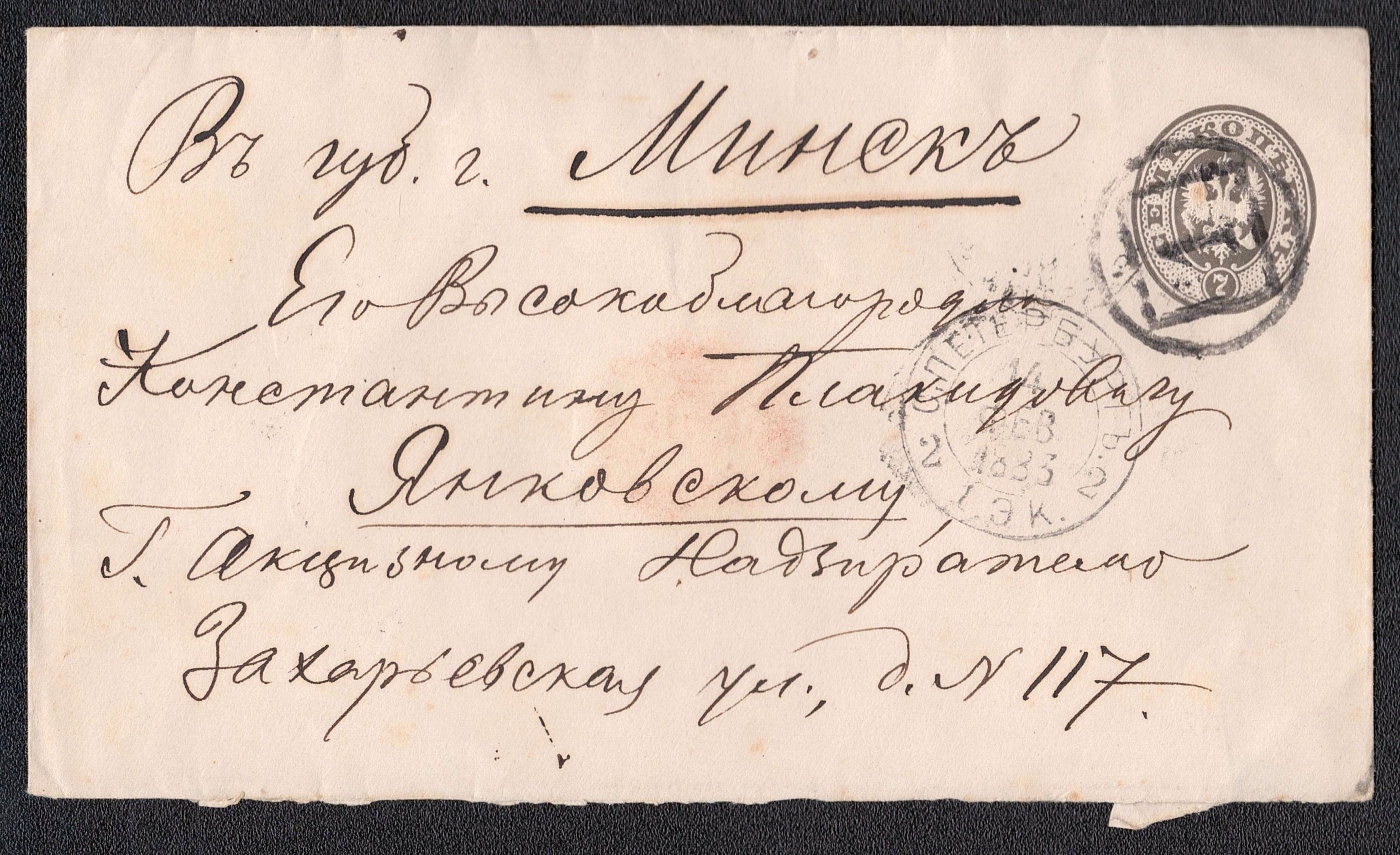 Въ губ. г. Минскъ
СЕМЬ КОПѢЕКЪ
7
Его Высокоблагородію
Константину Плакидовичу
С.ПЕТЕРБУРГЪ.
14
ФЕВ
1883
2 2
1.ЭК.
Янковскому,
Г. Акцизному Надзирателю
Захарьевская ул., д. N 117.